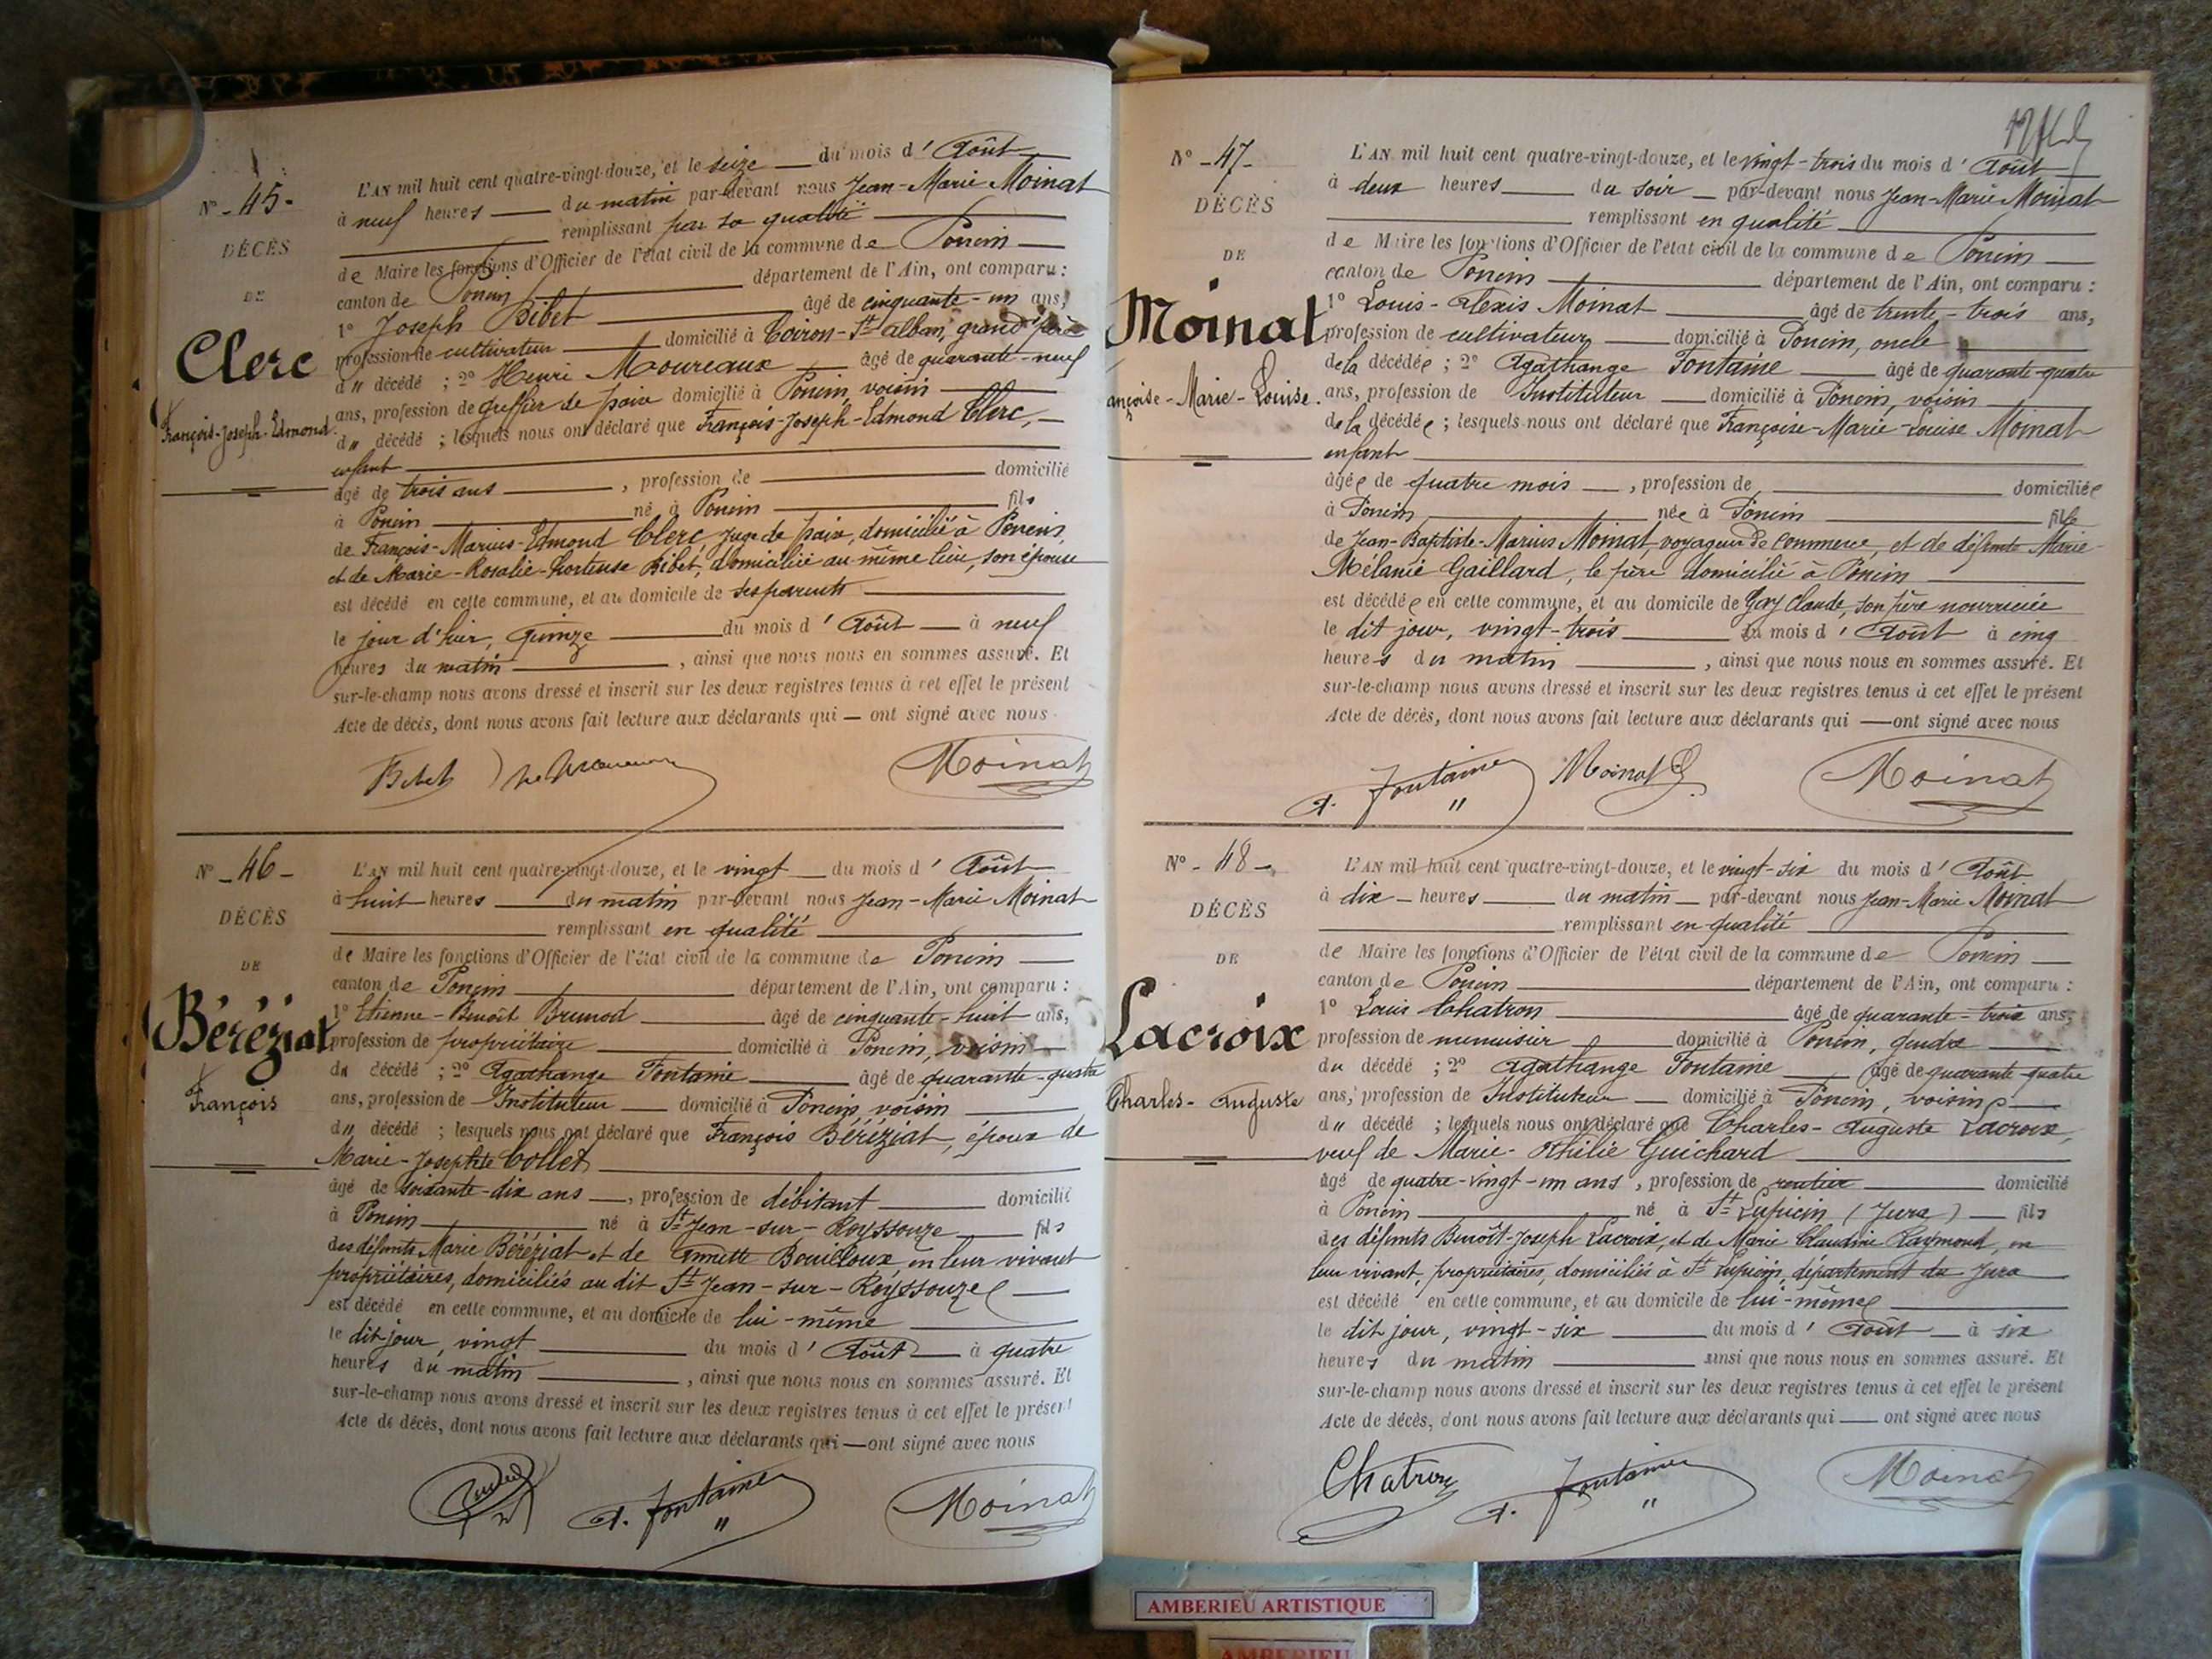 N° - 45 -
DÉCÈS
DE
Clerc
François-Joseph-Edmond
L'AN mil huit cent quatre-vingt-douze, et le seize du mois d'Août
à neuf heures du matin par-devant nous Jean-Marie Moinat
remplissant par sa qualité
de Maire les fonctions d'Officier de l'état civil de la commune de Poncin
canton de Poncin département de l'Ain, ont comparu :
1° Joseph Bibet âgé de cinquante-un ans,
profession de cultivateur domicilié à Coiron-St-alban, grand'père
d" décédé ; 2° Henri Moureaux âgé de quarante-neuf
ans, profession de greffier de paix domicilié à Poncin, voisin
d" décédé ; lesquels nous ont déclaré que François-Joseph-Edmond Clerc,
enfant
âgé de trois ans, profession de domicilié
à Poncin né à Poncin fils
de François-Marius-Edmond Clerc, Juge de paix, domicilié à Poncin,
et de Marie-Rosalie-Hortense Bibet, domiciliée au même lieu, son épouse
est décédé en cette commune, et au domicile de ses parents
le jour d'hier, quinze du mois d'Août à neuf
heures du matin, ainsi que nous nous en sommes assuré. Et
sur-le-champ nous avons dressé et inscrit sur les deux registres tenus à cet effet le présent
Acte de décès, dont nous avons fait lecture aux déclarants qui — ont signé avec nous
Bibet Moinat
N° - 46 -
DÉCÈS
DE
Béréziat
François
L'AN mil huit cent quatre-vingt-douze, et le vingt du mois d'Août
à huit heures du matin par-devant nous Jean-Marie Moinat
remplissant en qualité
de Maire les fonctions d'Officier de l'état civil de la commune de Poncin
canton de Poncin département de l'Ain, ont comparu :
1° Etienne-Benoît Brunod âgé de cinquante-huit ans,
profession de propriétaire domicilié à Poncin, voisin
du décédé ; 2° Agathange Fontaine âgé de quarante-quatre
ans, profession de Instituteur domicilié à Poncin, voisin
d" décédé ; lesquels nous ont déclaré que François Béréziat, époux de
Marie-Josephte Collet
âgé de soixante-dix ans, profession de débitant domicilié
à Poncin né à St-Jean-sur-Reyssouze fils
des défunts Marie Béréziat et de Annette Bouilloux en leur vivant
propriétaires, domiciliés au dit St-Jean-sur-Reyssouze
est décédé en cette commune, et au domicile de lui-même
le dit jour, vingt du mois d'Août à quatre
heures du matin, ainsi que nous nous en sommes assuré. Et
sur-le-champ nous avons dressé et inscrit sur les deux registres tenus à cet effet le présent
Acte de décès, dont nous avons fait lecture aux déclarants qui — ont signé avec nous
A. Fontaine Moinat
N° - 47 -
DÉCÈS
DE
Moinat
ançoise-Marie-Louise.
L'AN mil huit cent quatre-vingt-douze, et le vingt-trois du mois d'Août
à deux heures du soir par-devant nous Jean-Marie Moinat
remplissant en qualité
de Maire les fonctions d'Officier de l'état civil de la commune de Poncin
canton de Poncin département de l'Ain, ont comparu :
1° Louis-Alexis Moinat âgé de trente-trois ans,
profession de cultivateur domicilié à Poncin, oncle
de la décédée ; 2° Agathange Fontaine âgé de quarante-quatre
ans, profession de Instituteur domicilié à Poncin, voisin
de la décédée ; lesquels nous ont déclaré que Françoise-Marie-Louise Moinat
enfant
âgée de quatre mois, profession de domiciliée
à Poncin née à Poncin fille
de Jean-Baptiste-Marius Moinat, voyageur de commerce, et de défunte Marie-
Mélanie Gaillard, le père domicilié à Poncin
est décédée en cette commune, et au domicile de Gay Claude, son père nourricier
le dit jour, vingt-trois du mois d'Août à cinq
heures du matin, ainsi que nous nous en sommes assuré. Et
sur-le-champ nous avons dressé et inscrit sur les deux registres tenus à cet effet le présent
Acte de décès, dont nous avons fait lecture aux déclarants qui — ont signé avec nous
A. Fontaine Moinat Moinat
N° - 48 -
DÉCÈS
DE
Lacroix
Charles-Auguste
L'AN mil huit cent quatre-vingt-douze, et le vingt-six du mois d'Août
à dix heures du matin par-devant nous Jean-Marie Moinat
remplissant en qualité
de Maire les fonctions d'Officier de l'état civil de la commune de Poncin
canton de Poncin département de l'Ain, ont comparu :
1° Louis Chatron âgé de quarante-trois ans,
profession de menuisier domicilié à Poncin, gendre
du décédé ; 2° Agathange Fontaine âgé de quarante-quatre
ans, profession de Instituteur domicilié à Poncin, voisin
d" décédé ; lesquels nous ont déclaré que Charles-Auguste Lacroix,
veuf de Marie- Guichard
âgé de quatre-vingt-un ans, profession de rentier domicilié
à Poncin né à St-Lupicin (Jura) fils
des défunts Benoît-Joseph Lacroix, et de Marie Claudine Raymond, en
leur vivant, propriétaires, domiciliés à St Lupicin, département du Jura
est décédé en cette commune, et au domicile de lui-même
le dit jour, vingt-six du mois d'Août à six
heures du matin ainsi que nous nous en sommes assuré. Et
sur-le-champ nous avons dressé et inscrit sur les deux registres tenus à cet effet le présent
Acte de décès, dont nous avons fait lecture aux déclarants qui — ont signé avec nous
Chatron A. Fontaine Moinat
AMBERIEU ARTISTIQUE
AMBERIEU